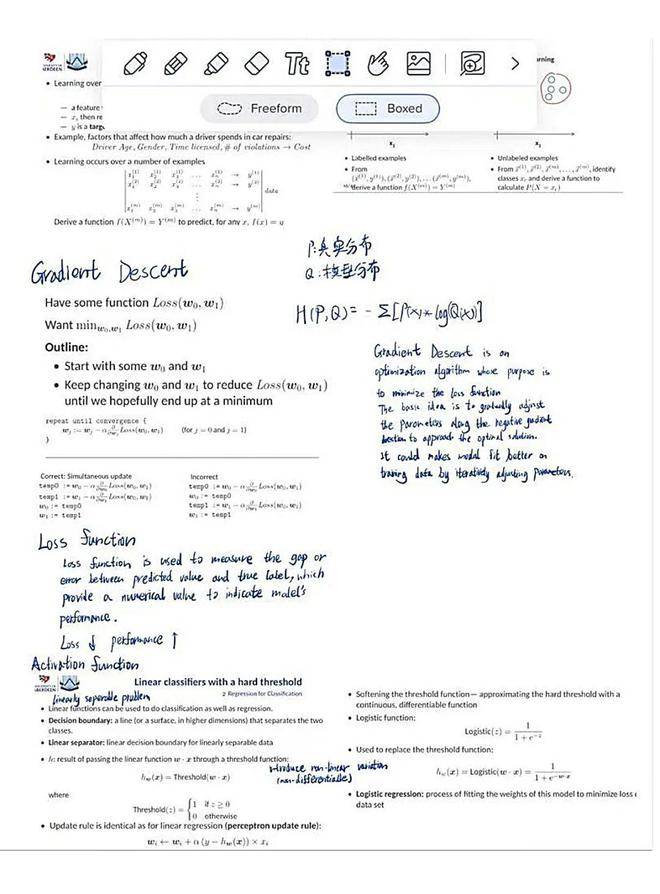 Tt
Freeform
Boxed
• Learning over
— a feature
— y is a targ
• Example, factors that affect how much a driver spends in car repairs:
Driver Age, Gender, Time licensed, # of violations → Cost
• Learning occurs over a number of examples
data
Derive a function f(X^(m)) = Y^(m) to predict, for any x, f(x) = y
x₁
x₁
• Labelled examples
• From
derive a function f(X^(m)) = Y^(m)
• Unlabeled examples
• From x̄^(1), x̄^(2), x̄^(3), ..., x̄^(m), identify
classes x_c and derive a function to
calculate P(X = x_c)
P:真实分布
Q:模型分布
H(P,Q) = - Σ[P(x) * log(Q(x))]
Gradient Descent
Have some function Loss(w₀, w₁)
Want min_w₀,w₁ Loss(w₀, w₁)
Outline:
• Start with some w₀ and w₁
• Keep changing w₀ and w₁ to reduce Loss(w₀, w₁)
until we hopefully end up at a minimum
repeat until convergence {
w_j := w_j − α ∂/∂w_j Loss(w₀, w₁) (for j = 0 and j = 1)
}
Gradient Descent is an
optimization algorithm whose purpose is
to minimize the loss function
The basic idea is to gradually adjust
the parameters along the negative gradient
to approach the optimal solution.
It could makes model fit better on
data by iteratively adjusting parameters.
Correct: Simultaneous update
temp0 := w₀ − α ∂/∂w₀ Loss(w₀, w₁)
temp1 := w₁ − α ∂/∂w₁ Loss(w₀, w₁)
w₀ := temp0
w₁ := temp1
Incorrect
temp0 := w₀ − α ∂/∂w₀ Loss(w₀, w₁)
w₀ := temp0
temp1 := w₁ − α ∂/∂w₁ Loss(w₀, w₁)
w₁ := temp1
Loss function
Loss function is used to measure the gap or
error between predicted value and true label, which
provide a numerical value to indicate model's
performance.
Loss ↓ performance ↑
Activation function
Linear classifiers with a hard threshold
2 Regression for Classification
linearly separable problem
• Linear functions can be used to do classification as well as regression.
• Decision boundary: a line (or a surface, in higher dimensions) that separates the two
classes.
• Linear separator: linear decision boundary for linearly separable data
• h: result of passing the linear function w · x through a threshold function:
introduce non-linear variation
(non-differentiable)
h_w(x) = Threshold(w · x)
where
Threshold(z) = { 1 if z ≥ 0
0 otherwise
• Update rule is identical as for linear regression (perceptron update rule):
w_i ← w_i + α (y − h_w(x)) × x_i
• Softening the threshold function— approximating the hard threshold with a
continuous, differentiable function
• Logistic function:
Logistic(z) = 1 / (1 + e^−z)
• Used to replace the threshold function:
h_w(x) = Logistic(w · x) = 1 / (1 + e^−w·x)
• Logistic regression: process of fitting the weights of this model to minimize loss
data set